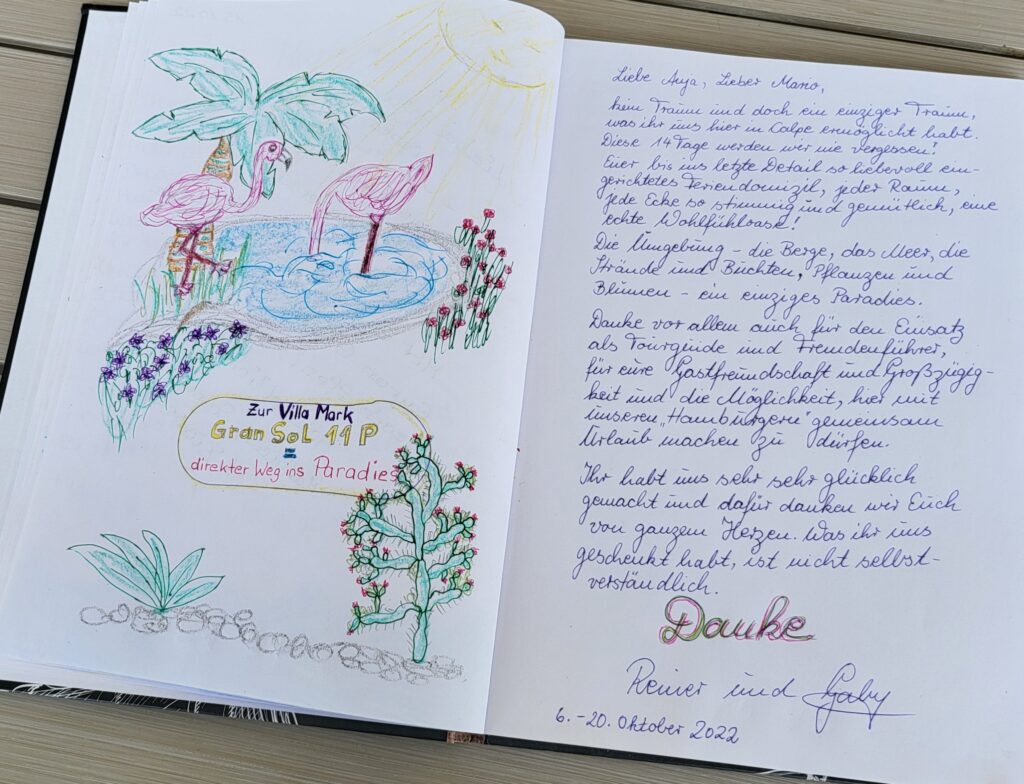 Zur Villa Mark
Gran Sol 11 P
=
direkter Weg ins Paradies
Liebe Anja, Lieber Mario,
kein Traum und doch ein einziger Traum,
was ihr uns hier in Calpe ermöglicht habt.
Diese 14 Tage werden wir nie vergessen!
Euer bis ins letzte Detail so liebevoll ein-
gerichtetes Feriendomizil, jeder Raum,
jede Ecke so stimmig und gemütlich, eine
echte Wohlfühloase!
Die Umgebung - die Berge, das Meer, die
Strände und Buchten, Pflanzen und
Blumen - ein einziges Paradies.
Danke vor allem auch für den Einsatz
als Tourguide und Fremdenführer,
für eure Gastfreundschaft und Großzügig-
keit und die Möglichkeit, hier mit
unseren „Hamburgern" gemeinsam
Urlaub machen zu dürfen.
Ihr habt uns sehr sehr glücklich
gemacht und dafür danken wir Euch
von ganzem Herzen. Was ihr uns
geschenkt habt, ist nicht selbst-
verständlich.
Danke
Reiner und Gaby
6.-20. Oktober 2022